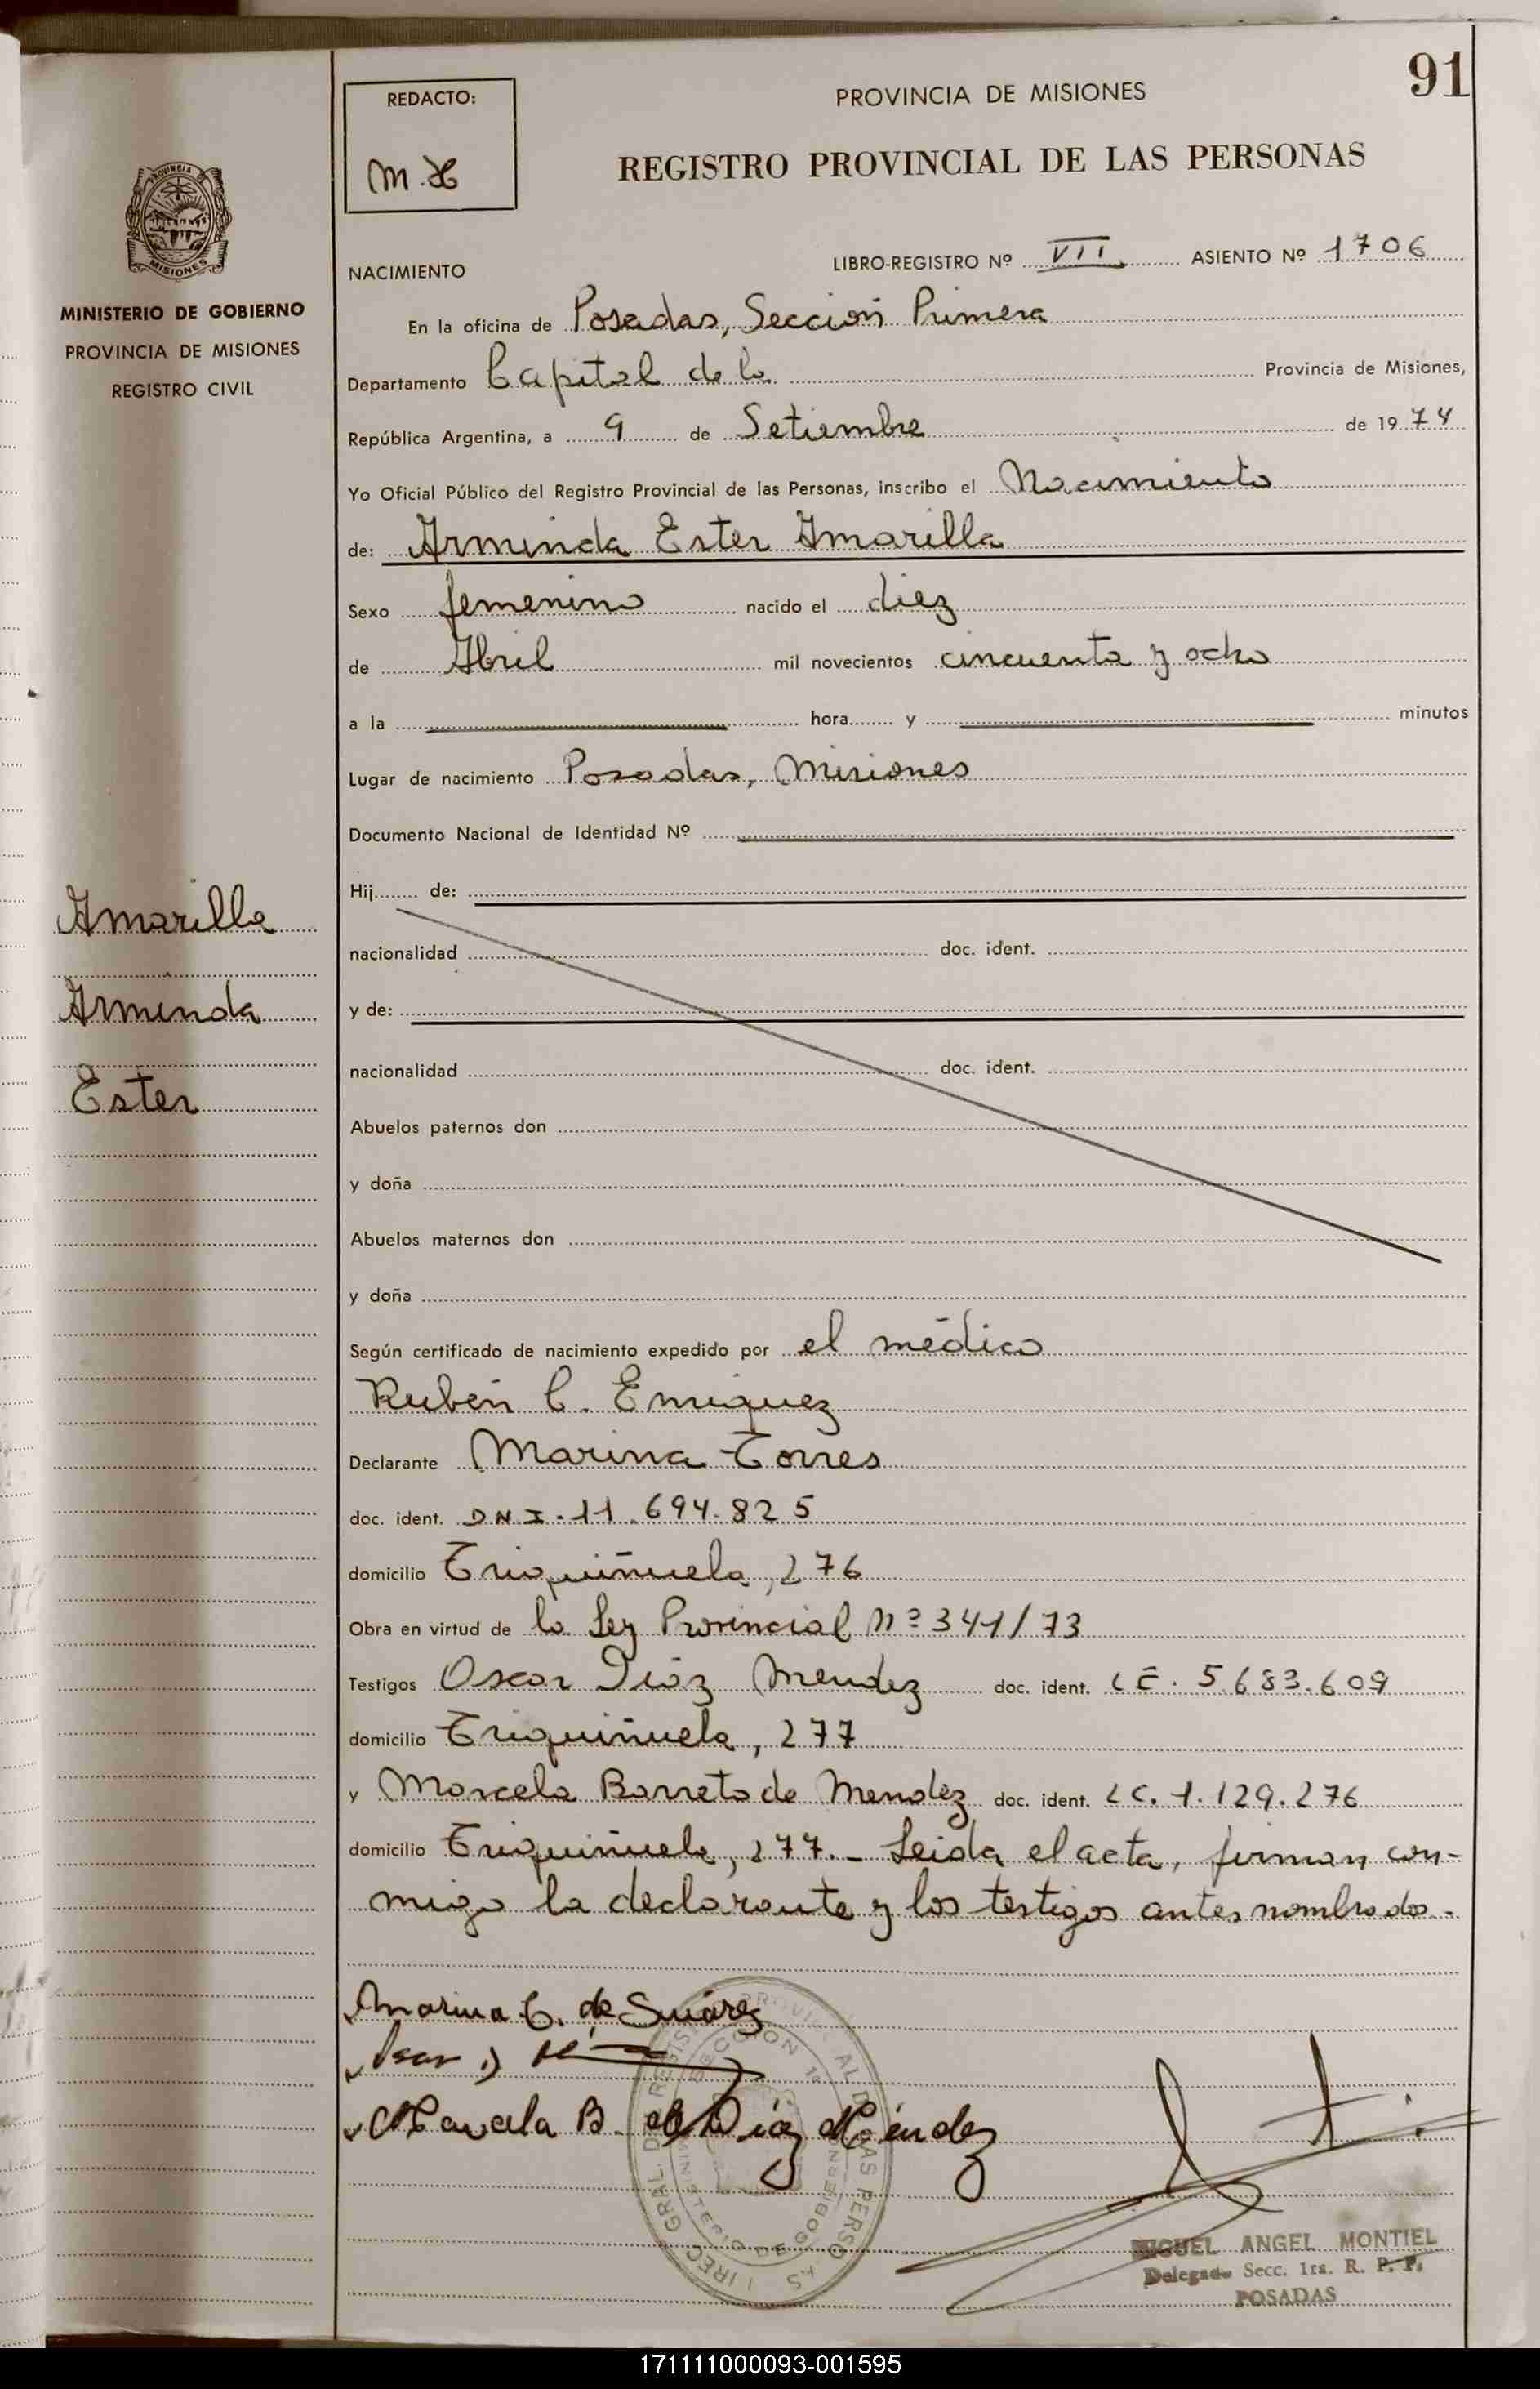 91
REDACTO:
M.H
PROVINCIA DE MISIONES
REGISTRO PROVINCIAL DE LAS PERSONAS
PROVINCIA
MISIONES
MINISTERIO DE GOBIERNO
PROVINCIA DE MISIONES
REGISTRO CIVIL
Amarilla
Arminda
Ester
NACIMIENTO LIBRO-REGISTRO Nº VII ASIENTO Nº 1706
En la oficina de Posadas, Sección Primera
Departamento Capital de la Provincia de Misiones,
República Argentina, a 9 de Setiembre de 1974
Yo Oficial Público del Registro Provincial de las Personas, inscribo el Nacimiento
de: Arminda Ester Amarilla
Sexo femenino nacido el diez
de Abril mil novecientos cincuenta y ocho
a la hora y minutos
Lugar de nacimiento Posadas, Misiones
Documento Nacional de Identidad Nº
Hij de:
nacionalidad doc. ident.
y de:
nacionalidad doc. ident.
Abuelos paternos don
y doña
Abuelos maternos don
y doña
Según certificado de nacimiento expedido por el médico
Rubén C. Enriquez
Declarante Marina Torres
doc. ident. DNI. 11.694.825
domicilio Triquiñuela, 276
Obra en virtud de la Ley Provincial Nº 341/73
Testigos Oscar Diáz Mendez doc. ident. LE. 5.683.609
domicilio Triquiñuela, 277
y Marcela Barreto de Mendez doc. ident. LC. 1.129.276
domicilio Triquiñuela, 277.- Leida el acta, firman con-
migo la declarante y los testigos antes nombrados.
Marina T. de Suárez
Marcela B. de Diaz Méndez
SECCION 1ª
MINISTERIO DE GOBIERNO
MIGUEL ANGEL MONTIEL
Delegado Secc. 1ra. R. P. P.
POSADAS
171111000093-001595